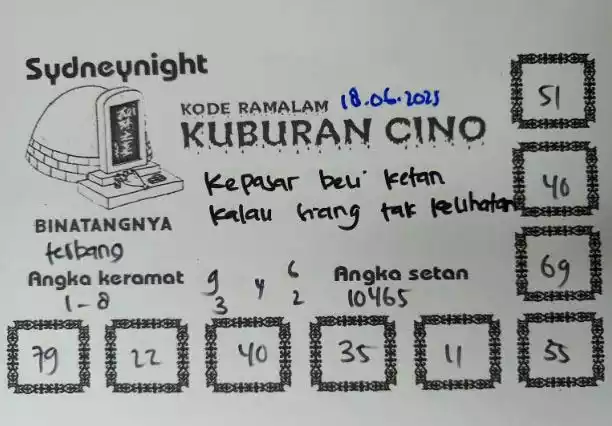 Sydneynight
KODE RAMALAM 18.06.2025
KUBURAN CINO
51
Kepasar beli ketan
kalau siang tak kelihatan
40
BINATANGNYA
terbang
69
Angka keramat
1-8
9 4 6
3 2
Angka setan
10465
79 22 40 35 11 55